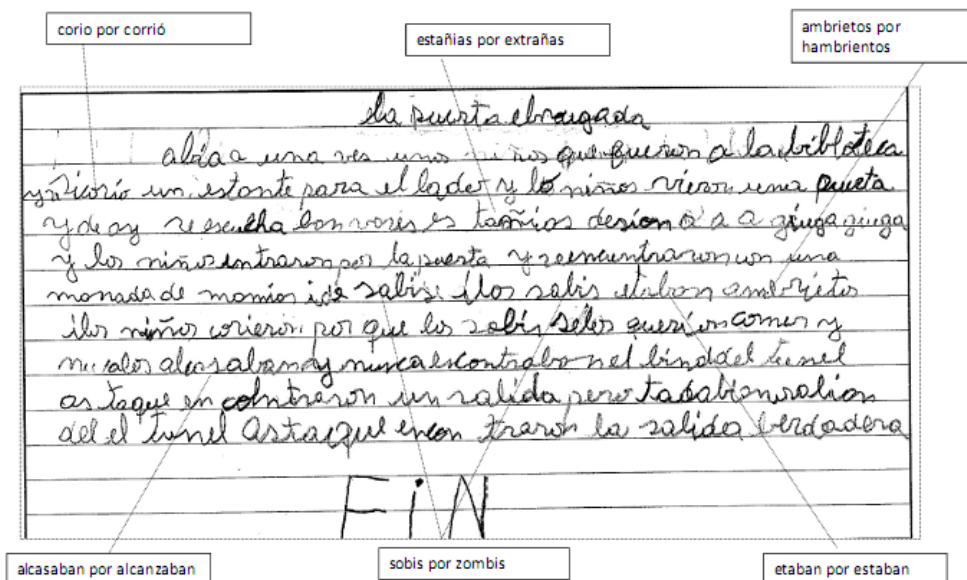 corio por corrió
estañias por extrañas
ambrietos por
hambrientos
la puerta
abia a una ves unos niños que fueron a la bibloteca
un estante para el lado y lo niños vieron una pueta
y de ay se escucha bon voses es tañias desion a a a giuga giuga
y los niños intraron por la puerta y se encuntraron con una
monada de momios i de sobis illos sobis etaban ambrietos
ilos niños corieron por que los sobis selos querion comer y
alcasaban y nunca encontrabon el del tunel
as ta que en contraron un salida pero salion
del el tunel asta que encon traron la salida berdadera
FiN
alcasaban por alcanzaban
sobis por zombis
etaban por estaban